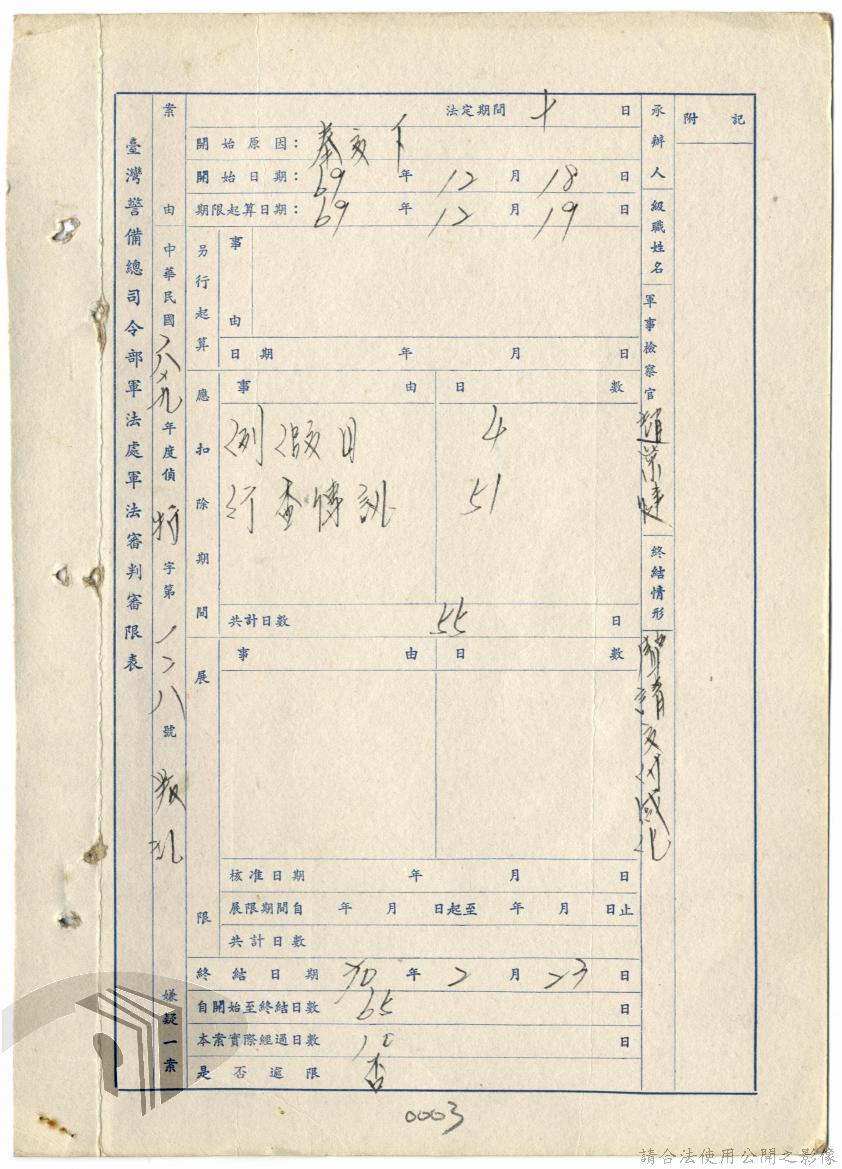 臺灣警備總司令部軍法處軍法審判審限表
案由 中華民國六十九年度偵特字第一一八號 叛亂嫌疑一案
法定期間 十 日
開始原因: 奉交下
開始日期: 69年12月18日
期限起算日期: 69年12月19日
另行起算
事由
日期 年 月 日
應扣除期間
事由 日數
例假日 4
行查傳訊 51
共計日數 55 日
展限
事由 日數
核准日期 年 月 日
展限期間自 年 月 日起至 年 月 日止
共計日數
終結日期 70年2月23日
自開始至終結日數 65 日
本案實際經過日數 10 日
是否逾限 否
承辦人 級職姓名 軍事檢察官 趙榮 終結情形 聲請交付感化
附記
0003
請合法使用公開之影像